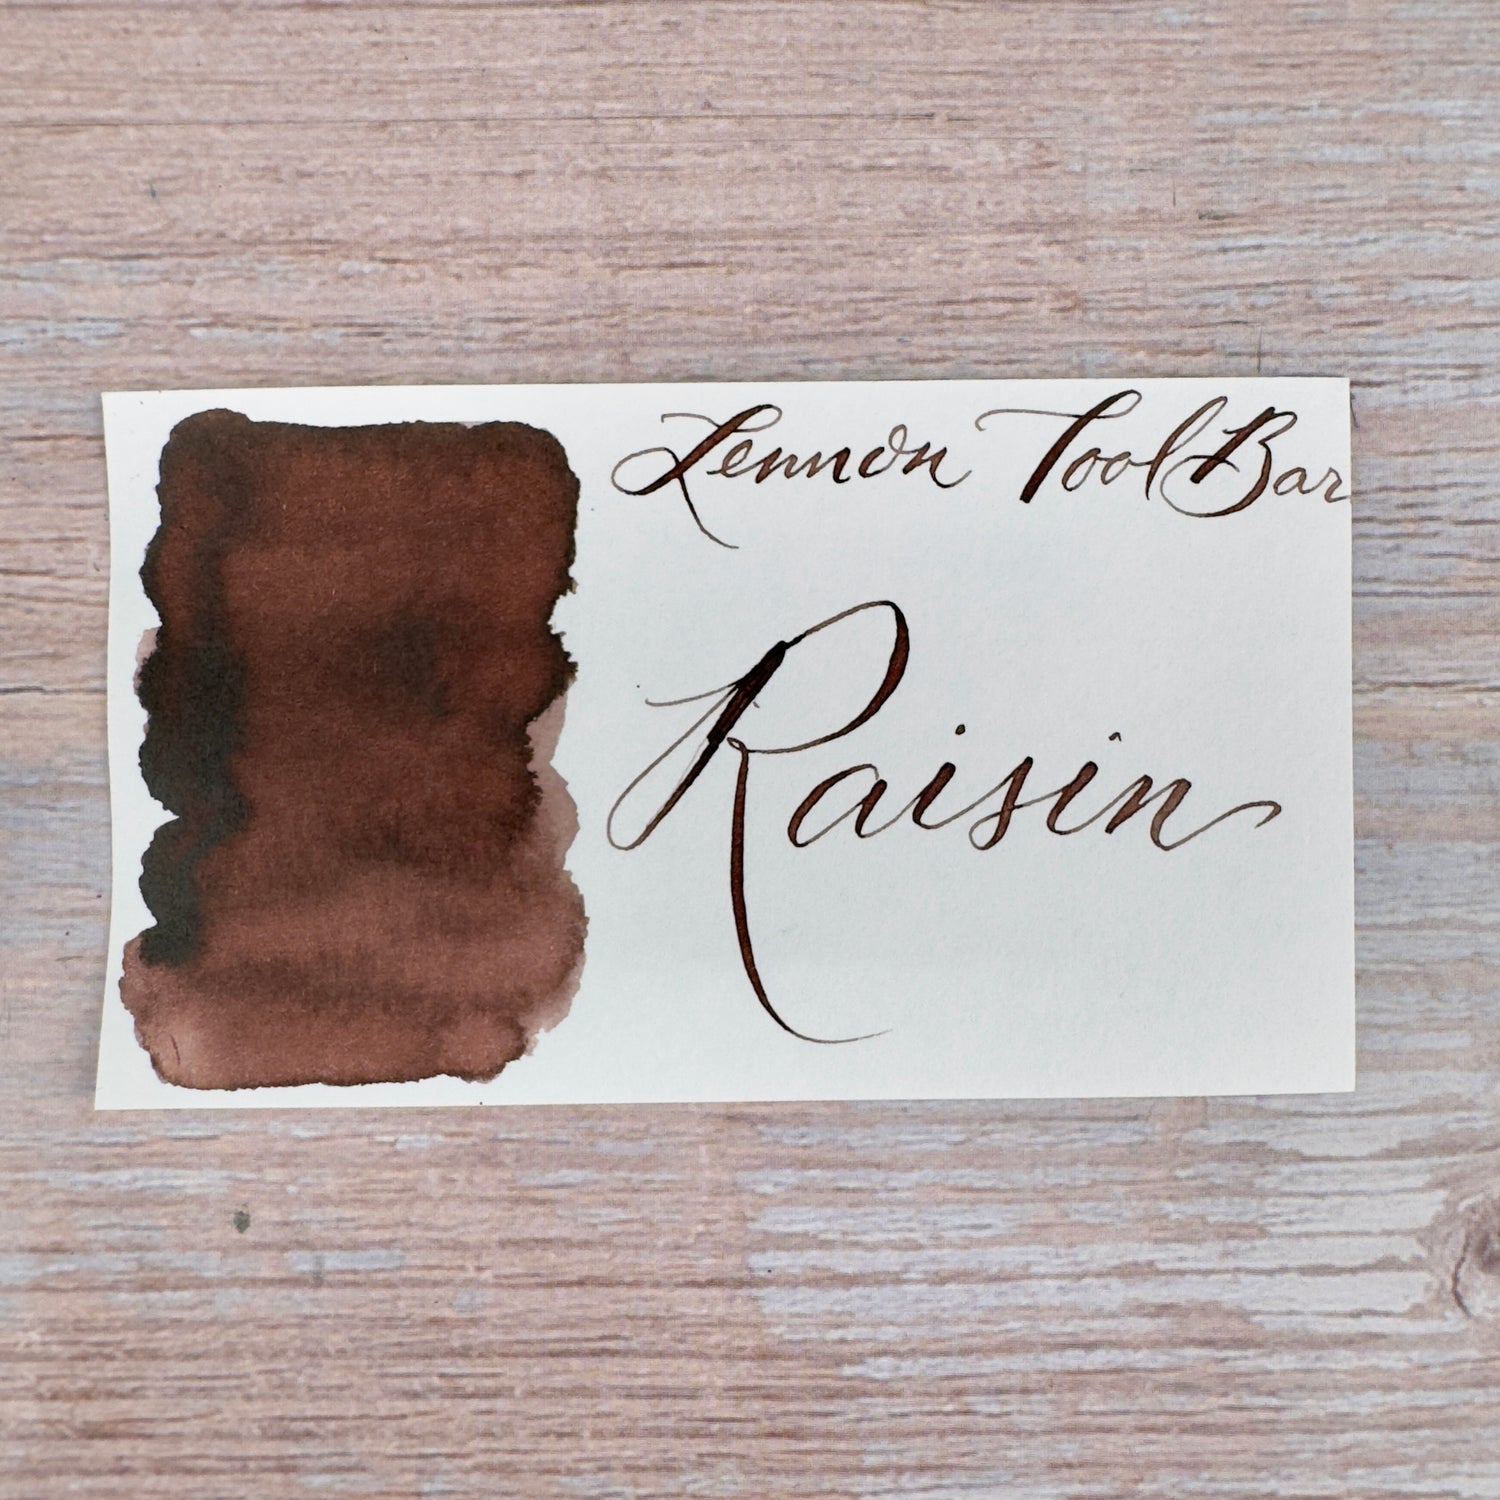 Lennon Tool Bar
Raisin